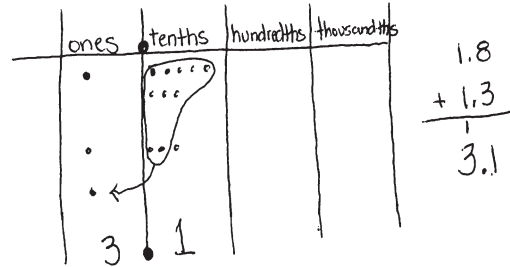 ones tenths hundredths thousandths
1.8
+ 1.3
1
3.1
3 . 1